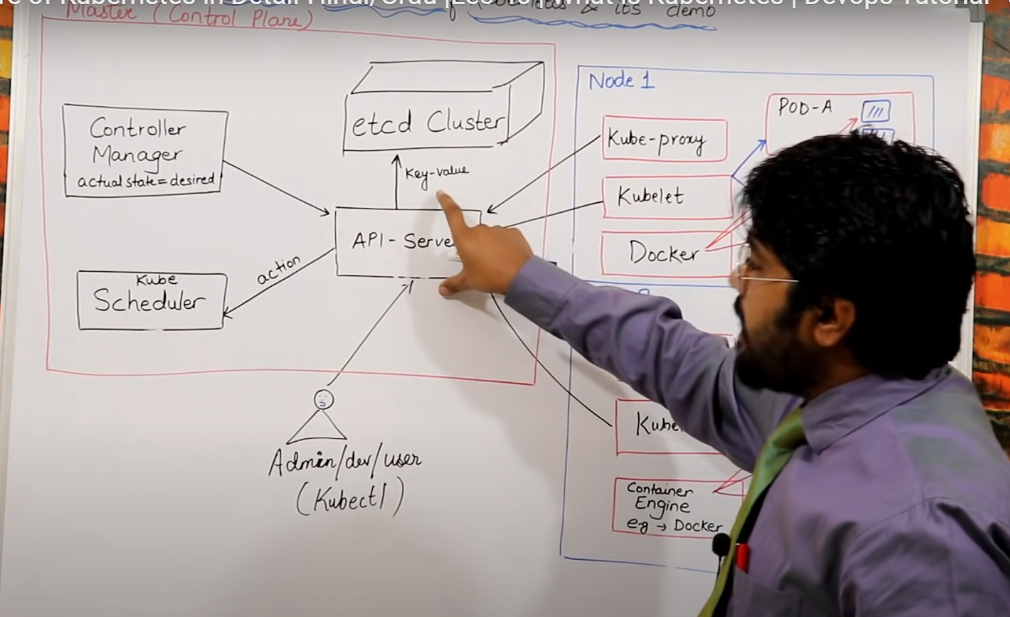 re of Kubernetes in Detail Hindi/Urdu |Les
What is Kubernetes | Devops Tutorial
Master (Control Plane)
of
& its demo
Controller
Manager
actual state = desired
etcd Cluster
Key-value
API-Serve
action
Kube
Scheduler
Admin/dev/user
(Kubectl)
Node 1
Kube-proxy
Kubelet
Docker
POD-A
Kube
Container
Engine
eg → Docker